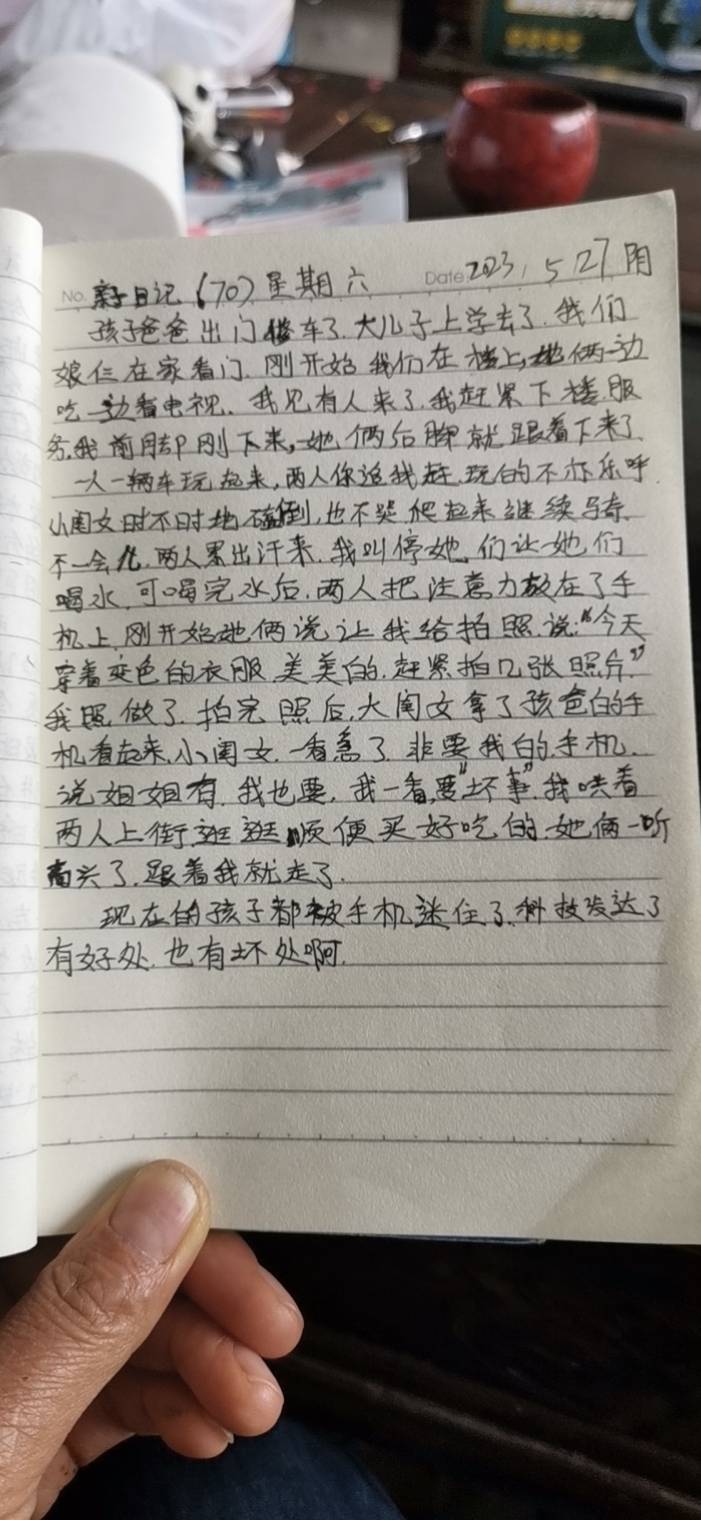 No. 亲子日记（70）星期六 Date 2023, 5 27 阴
孩子爸爸出门修车了.大儿子上学去了.我们
娘仨在家看门.刚开始我们在楼上,她俩一边
吃一边看电视.我见有人来了.我赶紧下楼服
务.我前脚刚下来,她俩后脚就跟着下来了.
一人一辆车玩起来,两人你追我赶.玩的不亦乐呼.
小闺女时不时地磕倒,也不哭.爬起来继续骑.
不一会儿.两人累出汗来.我叫停她们让她们
喝水.可喝完水后.两人把注意力放在了手
机上.刚开始她俩说让我给拍照.说:“今天
穿着变色的衣服美美的.赶紧拍几张照片.”
我照做了.拍完照后.大闺女拿了孩爸的手
机看起来.小闺女一看急了.非要我的手机.
说姐姐有.我也要,我一看,要“坏事”.我哄着
两人上街逛逛顺便买好吃的.她俩一听
高兴了.跟着我就走了.
现在的孩子都被手机迷住了.科技发达了
有好处.也有坏处啊.